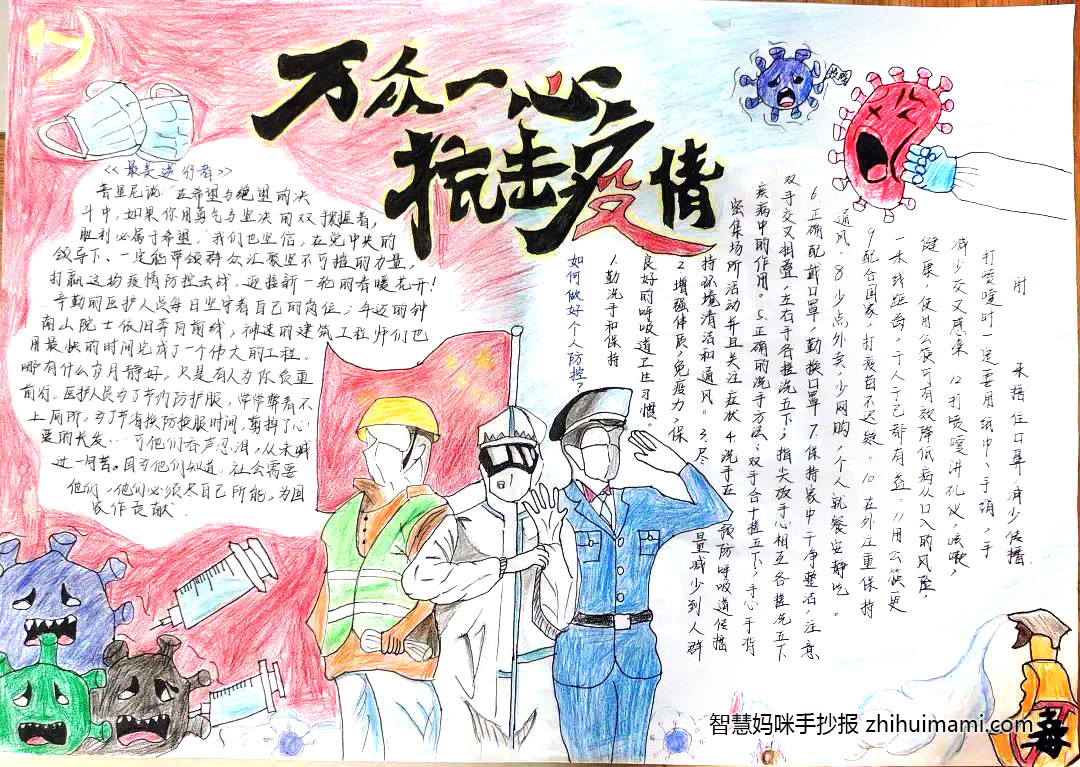 万众一心
抗击疫情
<<最美逆行者>>
普里尼说“在希望与绝望的决
斗中,如果你用勇气与坚决的双手握着,
胜利必属于希望。”我们也坚信,在党中央的
领导下、一定能带领群众汇聚坚不可摧的力量,
打赢这场疫情防控击战。迎接新一轮的春暖花开!
辛勤的医护人员每日坚守着自己的岗位;年迈的钟
南山院士依旧奔向前线,神速的建筑工程师们也
用最快的时间完成了一个伟大的工程。
哪有什么岁月静好,只是有人为你负重
前行。医护人员为了节约防护服,常常弊着不
上厕所,为了节省换防护服时间,剪掉了心
爱的长发…可他们吞声忍泪,从未喊
过一句苦。因为他们知道,社会需要
他们,他们必须尽自己所能,为国
家作贡献.
如何做好个人防控?
1.勤洗手和保持
良好的呼吸道卫生习惯。
2.增强体质,免疫力,保
持环境清洁和通风。3.尽量减少到人群
密集场所活动并且关注症状 4.洗手在预防呼吸道传播
疾病中的作用。5.正确的洗手方法:双手合十搓五下,手心手背
双手交叉相叠,左右手各搓洗五下;指尖放手心相互各搓洗五下
6.正确配戴口罩,勤换口罩 7.保持家中干净整洁,注意
通风。8.少点外卖,少网购,个人就餐安静吃。
9.配合国家,打疫苗不迟疑。10.在外注重保持
一米线距离,于人于己都有益 11.用公筷更
健康,使用公筷可有效降低病从口入的风险,
减少交叉感染 12.打喷嚏讲礼仪,咳嗽、
打喷嚏时一定要用纸巾、手绢,手
肘来捂住口鼻,减少传播.
毒
智慧妈咪手抄报 zhihuimami.com